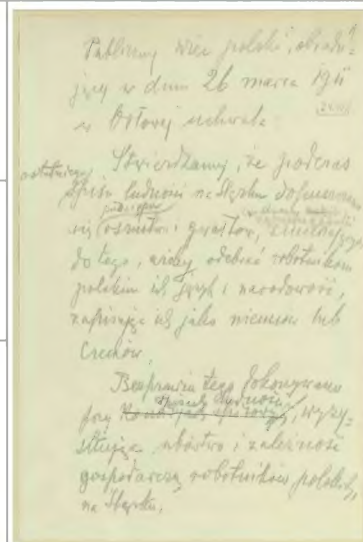 Publiczny wiec polski, obradu-
jący w dniu 26 marca 1911
w Orłovej uchwala
Stwierdzamy, że podczas
ostatniego
spisu ludności na Śląsku dopuszczano
się oszustw i gwałtów,
do tego, ażeby odebrać robotnikom
polskim ich język i narodowość,
zapisując ich jako niemców lub
Czechów.
Bezprawia tego dokonywano
spisach ludności
przy, wyzy-
skując ubóstwo i zależność
gospodarczą robotników polskich
na Śląsku.